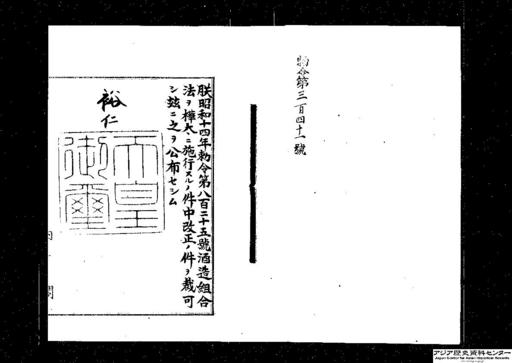 勅令第三百四十一號
朕昭和十四年勅令第八百二十五號酒造組合
法ヲ樺太ニ施行スルノ件中改正ノ件ヲ裁可
シ玆ニ之ヲ公布セシム
裕仁
天皇
御璽
内閣
アジア歴史資料センター
Japan Center for Asian Historical Records